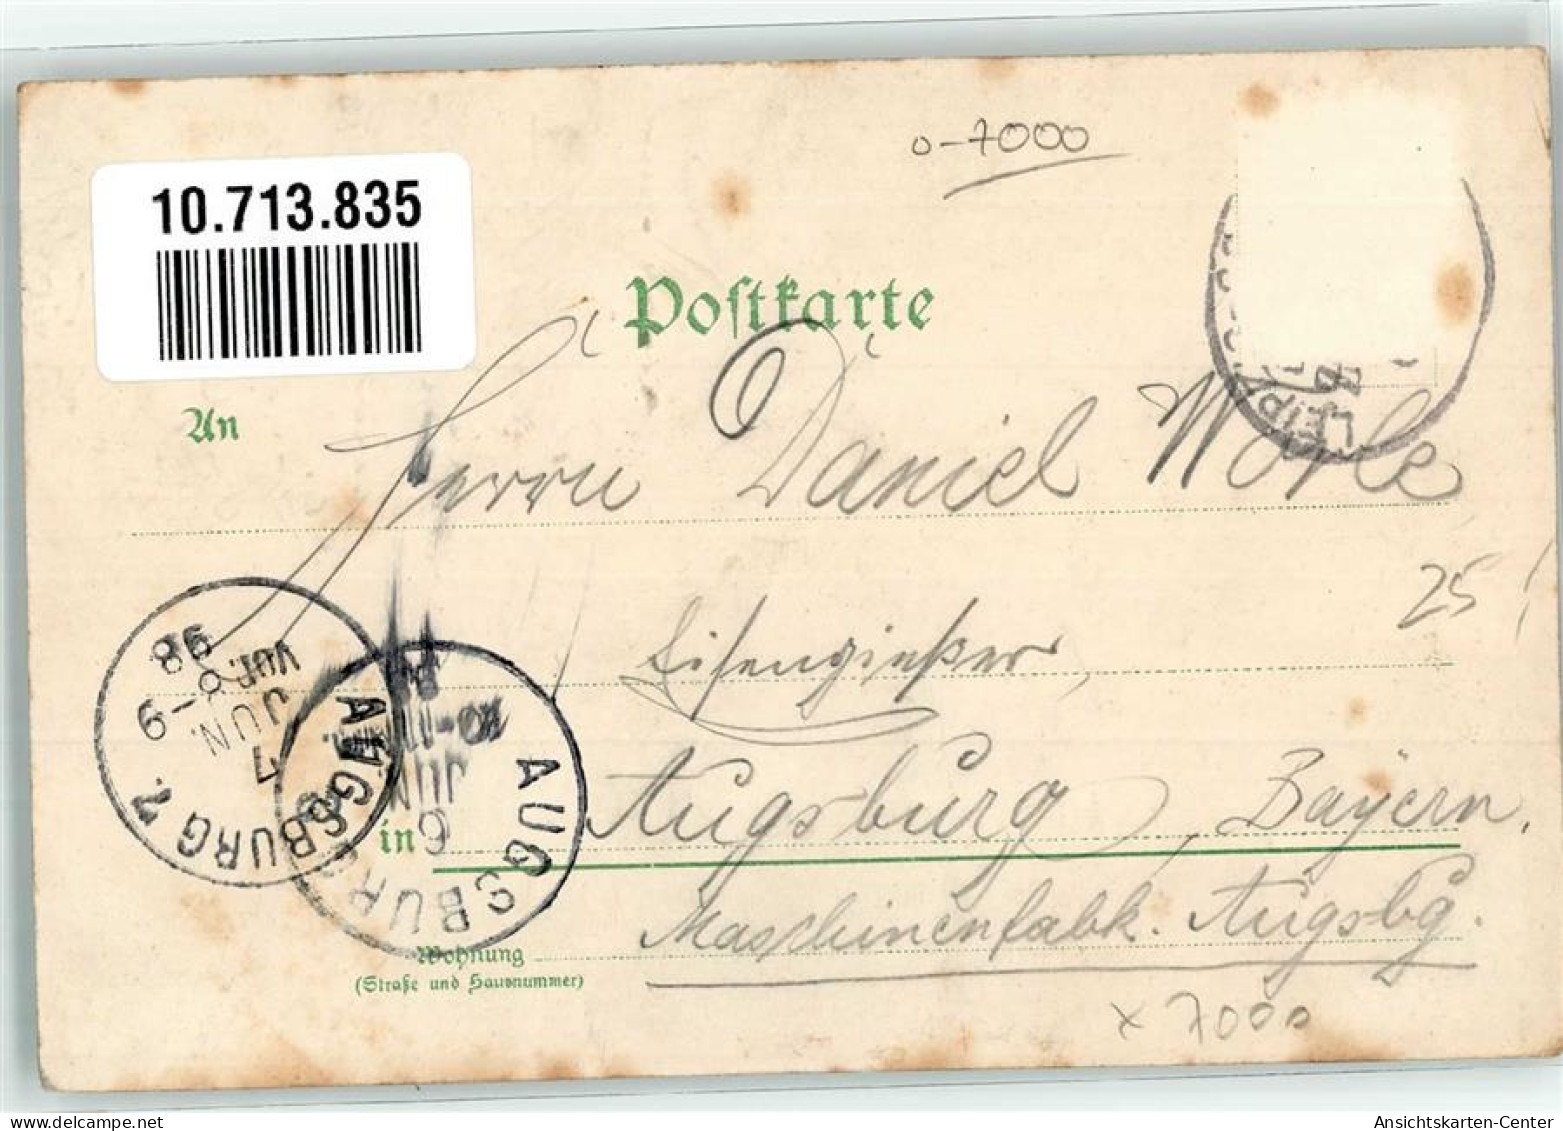 o-7000
10.713.835
Postkarte
An
Herrn Daniel Wörle
25
Eisengießer,
in Augsburg, Bayern.
Maschinenfabk. Augsbg.
Wohnung
(Straße und Hausnummer)
x 7000
LEIPZ
AUGSBURG 2.
7
JUN.
Vor. 8-9
98
AUGSBURG
6
JUN
delcampe.net
Ansichtskarten-Center